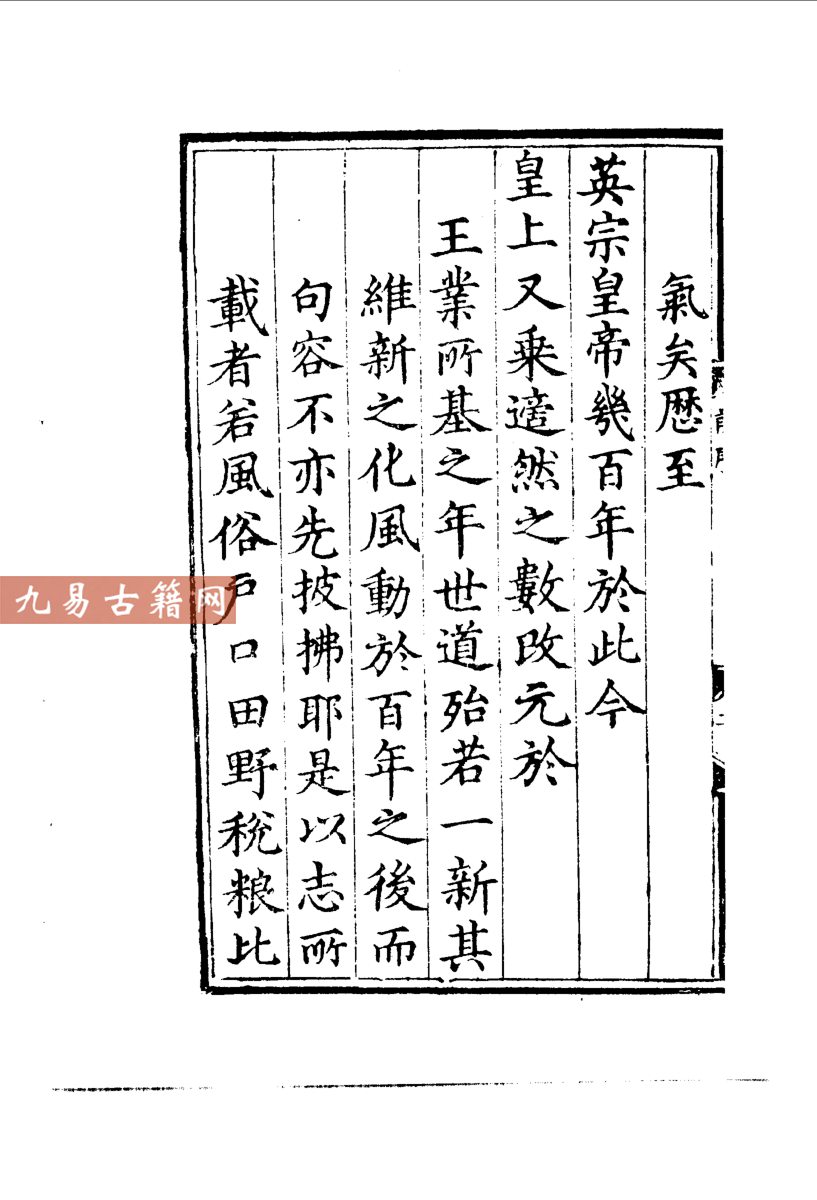 氣矣歷至
英宗皇帝幾百年於此今
皇上又乗適然之數改元於
王業所基之年世道殆若一新其
維新之化風動於百年之後而
句容不亦先披拂耶是以志所
載者若風俗戶口田野稅粮比
九易古籍网